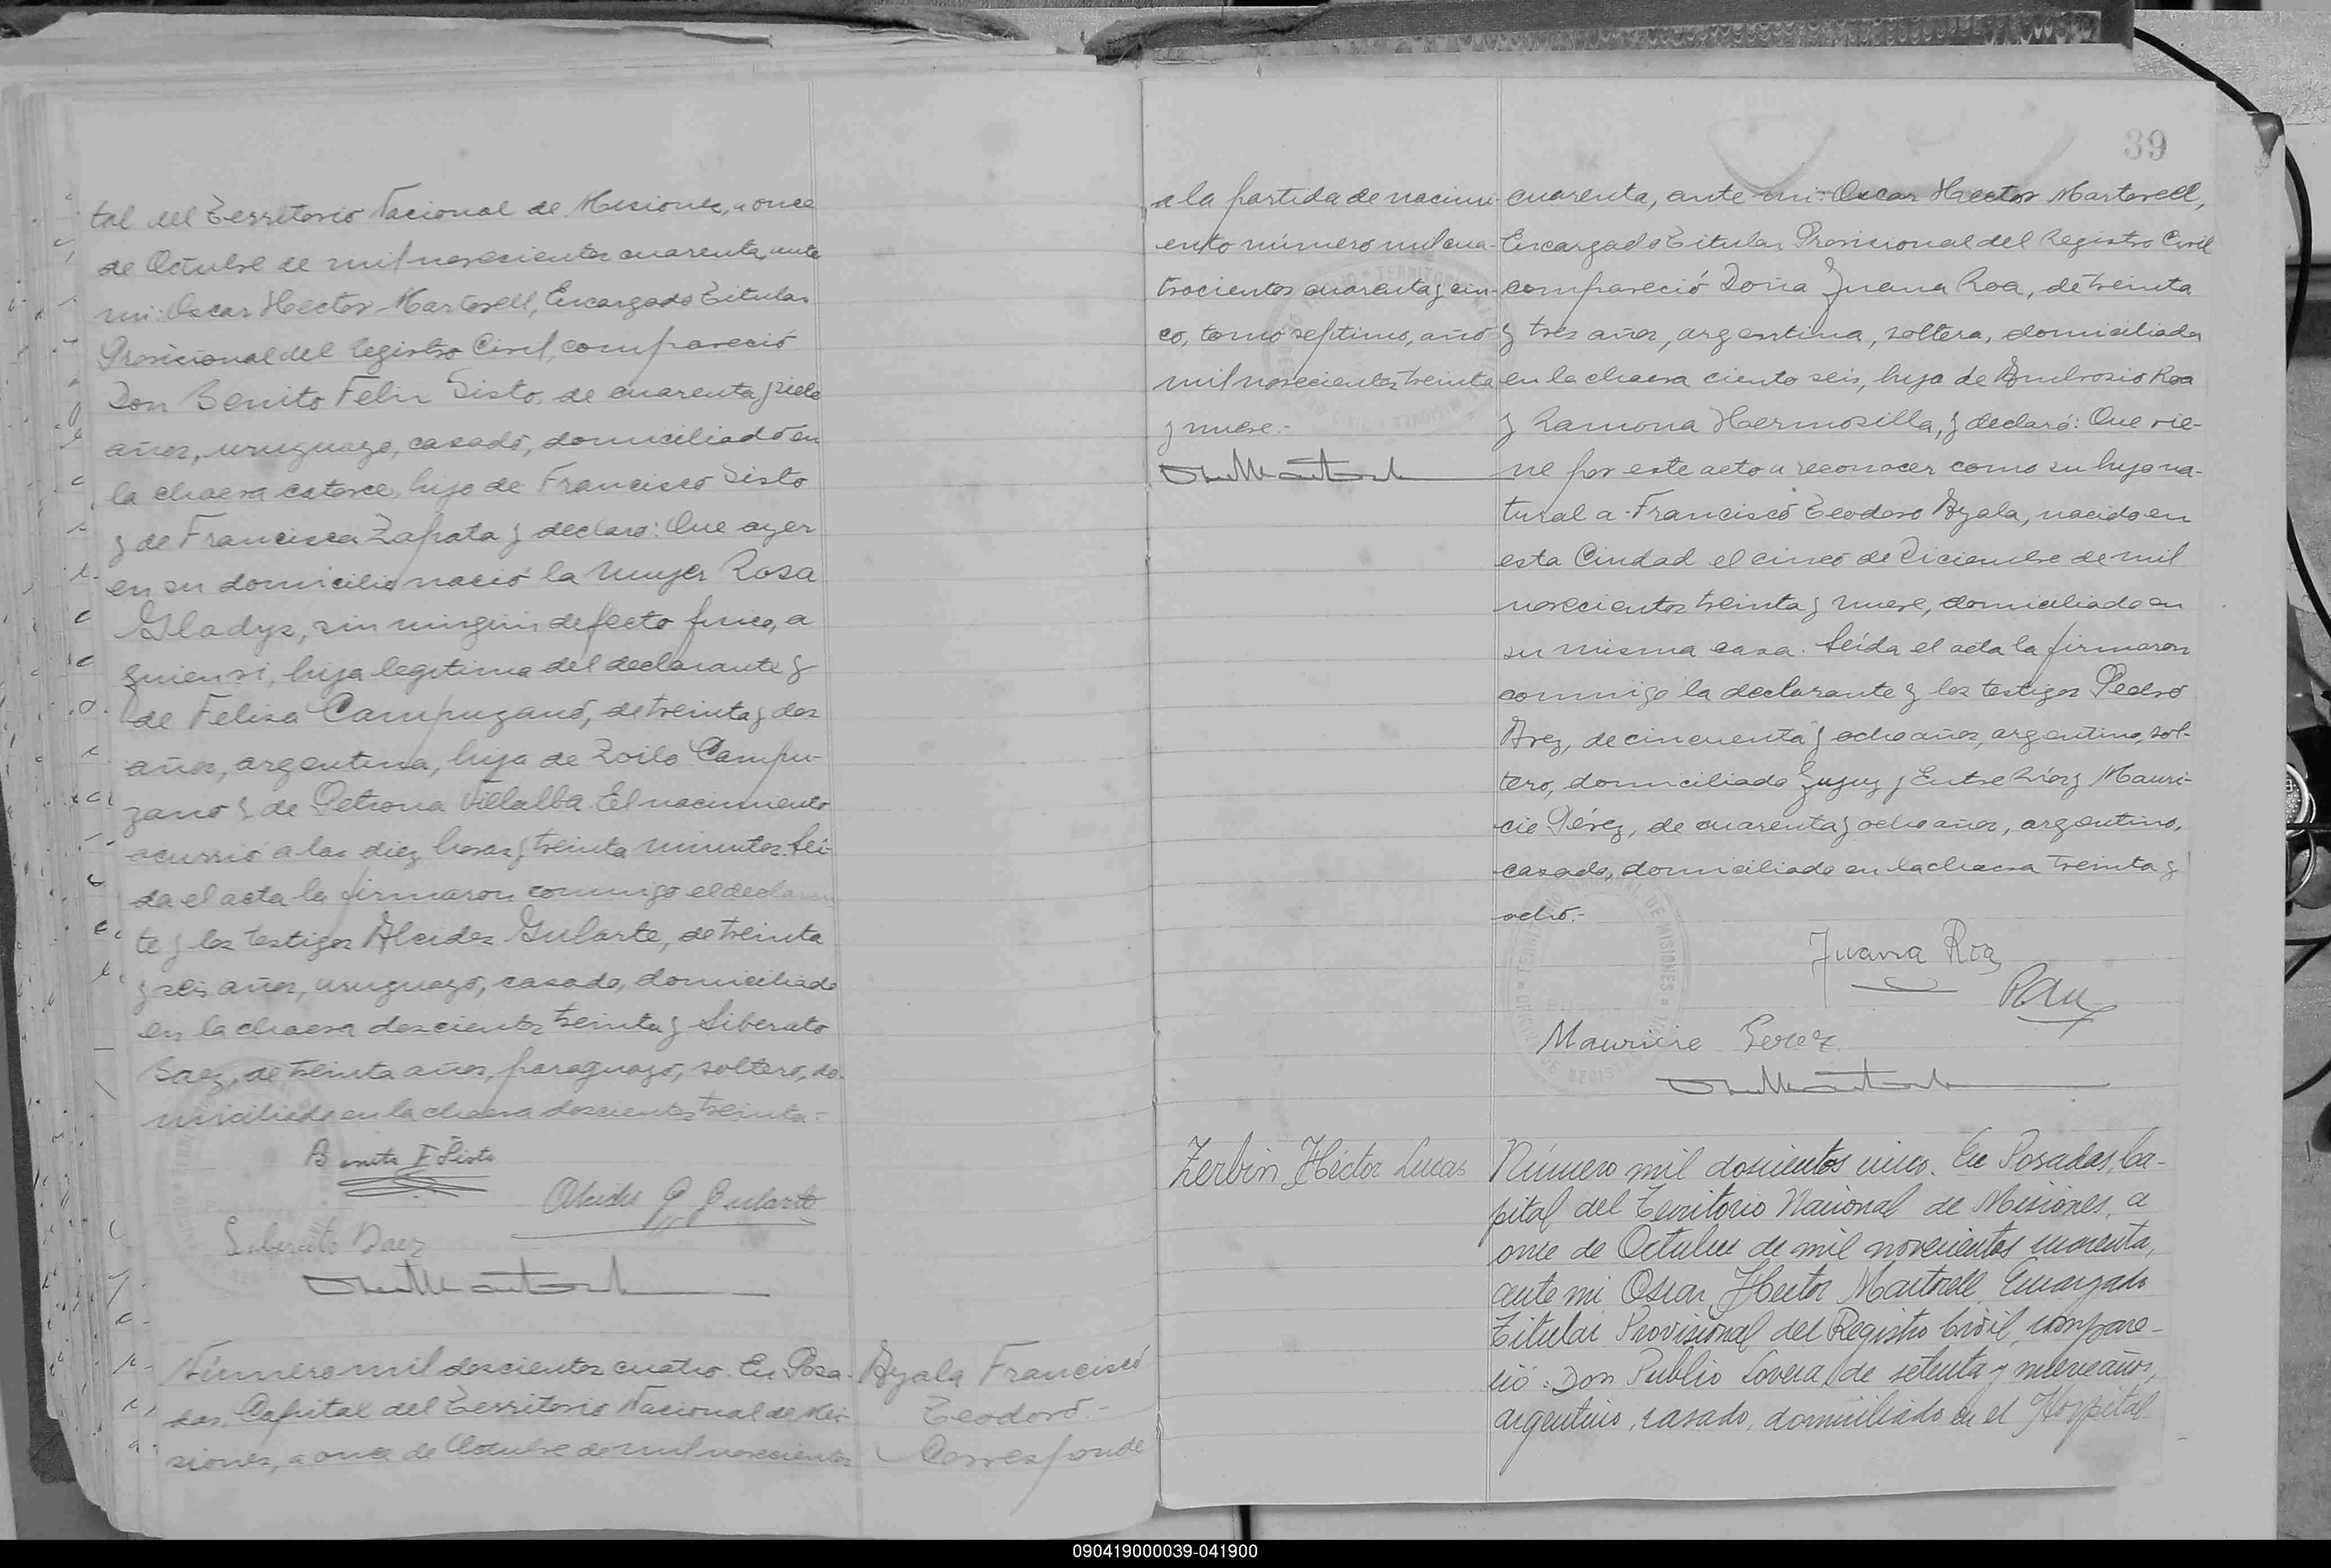 tal del Territorio Nacional de Misiones, a once
de Octubre de mil novecientos cuarenta, ante
mi: Oscar Hector Martorell, Encargado Titular
Provicional del Registro Civil, compareció
Don Benito Felix Sisto, de cuarenta y siete
años, uruguayo, casado, domiciliado en
la chacra catorce, hijo de Francisco Sisto
y de Francisca Zapata y declaró: Que ayer
en su domicilio nació la mujer Rosa
Gladys, sin ningún defecto fisico, a
quien vi, hija legitima del declarante y
de Felisa Campuzano, de treinta y dos
años, argentina, hija de Zoilo Campu-
zano y de Petrona Villalba. El nacimiento
ocurrió a las diez horas y treinta minutos. Leí-
da el acta la firmaron conmigo el declaran-
te y los testigos Alcides Gularte, de treinta
y seis años, uruguayo, casado, domiciliado
en la chacra doscientos treinta y Liberato
Baez, de treinta años, paraguayo, soltero, do-
miciliado en la chacra doscientos treinta.-
Benito F Sisto
Alcides G Gularte
Liberato Baez
Número mil doscientos cuatro. En Posa-
das, Capital del Territorio Nacional de Mi-
siones, a once de Octubre de mil novecientos
Ayala Francisco
Teodoro.-
Corresponde
39
a la partida de nacimi-
ento número mil cua-
trocientos cuarenta y cin-
co, tomo septimo, año
mil novecientos treinta
y nueve.-
cuarenta, ante mi: Oscar Hector Martorell,
Encargado Titular Provicional del Registro Civil
compareció Doña Juana Roa, de treinta
y tres años, argentina, soltera, domiciliada
en la chacra ciento seis, hija de Ambrosio Roa
y Ramona Hermosilla, y declaró: Que vie-
ne por este acto a reconocer como su hijo na-
tural a Francisco Teodoro Ayala, nacido en
esta Ciudad el cinco de Diciembre de mil
novecientos treinta y nueve, domiciliado en
su misma casa. Leída el acta la firmaron
conmigo la declarante y los testigos Pedro
Arez, de cincuenta y ocho años, argentino, sol-
tero, domiciliado Jujuy y Entre Ríos y Mauri-
cie Pérez, de cuarenta y ocho años, argentino,
casado, domiciliado en la chacra treinta y
ocho.-
Juana Roa
Mauricie Perez
Zerbin Héctor Lucas
Número mil doscientos cinco. En Posadas, Ca-
pital del Territorio Nacional de Misiones, a
once de Octubre de mil novecientos cuarenta,
ante mi Oscar Hector Martorell, Encargado
Titular Provisional del Registro Civil, compare-
ció: Don Publio Lovera, de setenta y nueve años,
argentino, casado, domiciliado en el Hospital
090419000039-041900